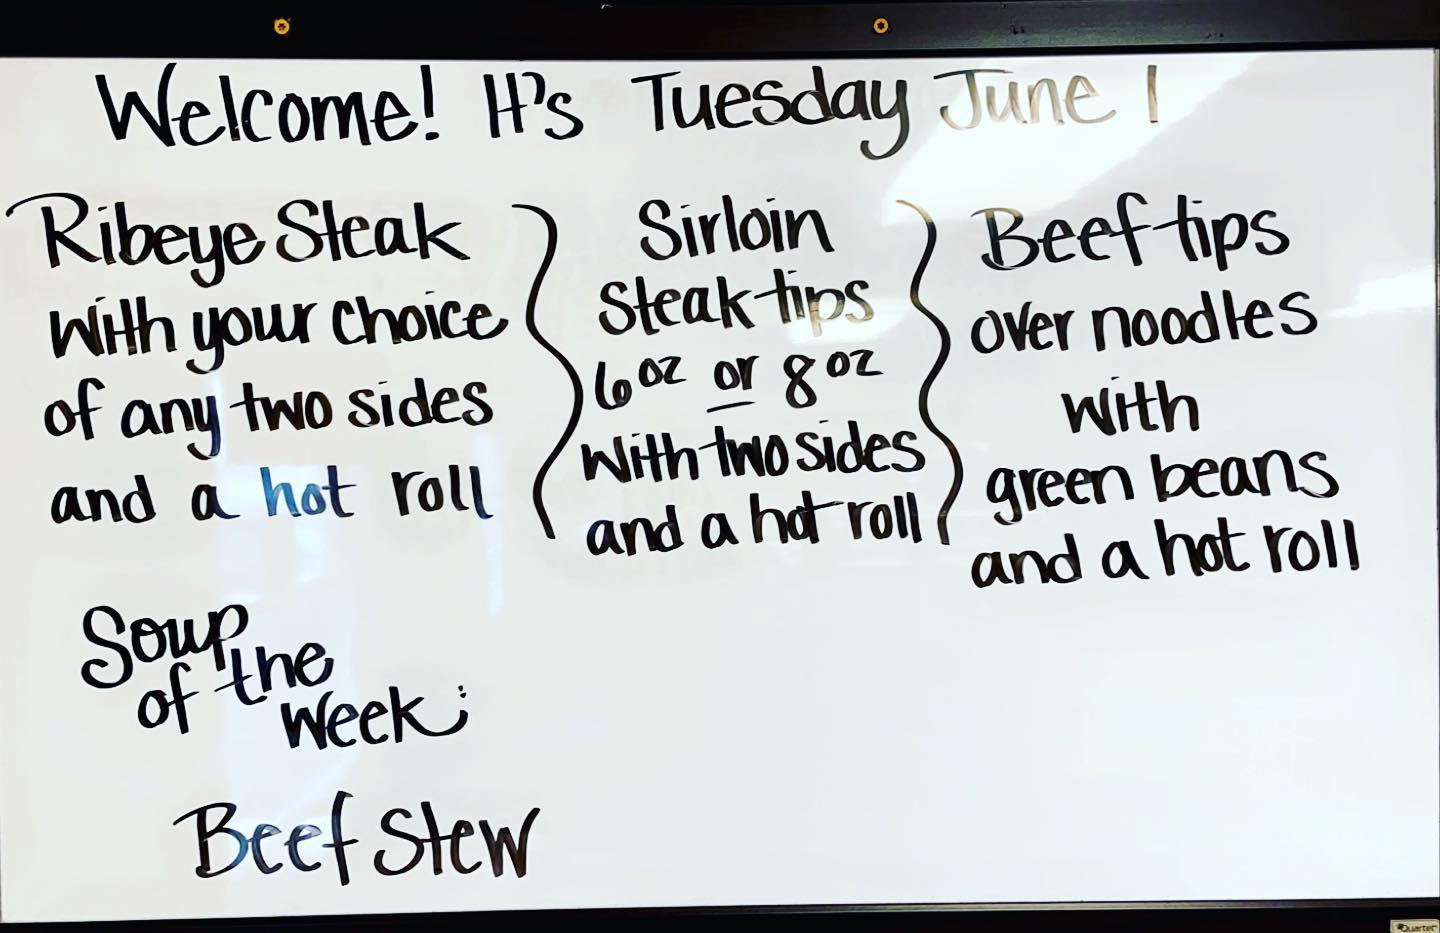 Welcome! It's Tuesday June 1
Ribeye Steak
with your choice
of any two sides
and a hot roll
Sirloin
Steak tips
6oz or 8oz
with two sides
and a hot roll
Beef tips
over noodles
with
green beans
and a hot roll
Soup
of the
Week:
Beef Stew
Quartet